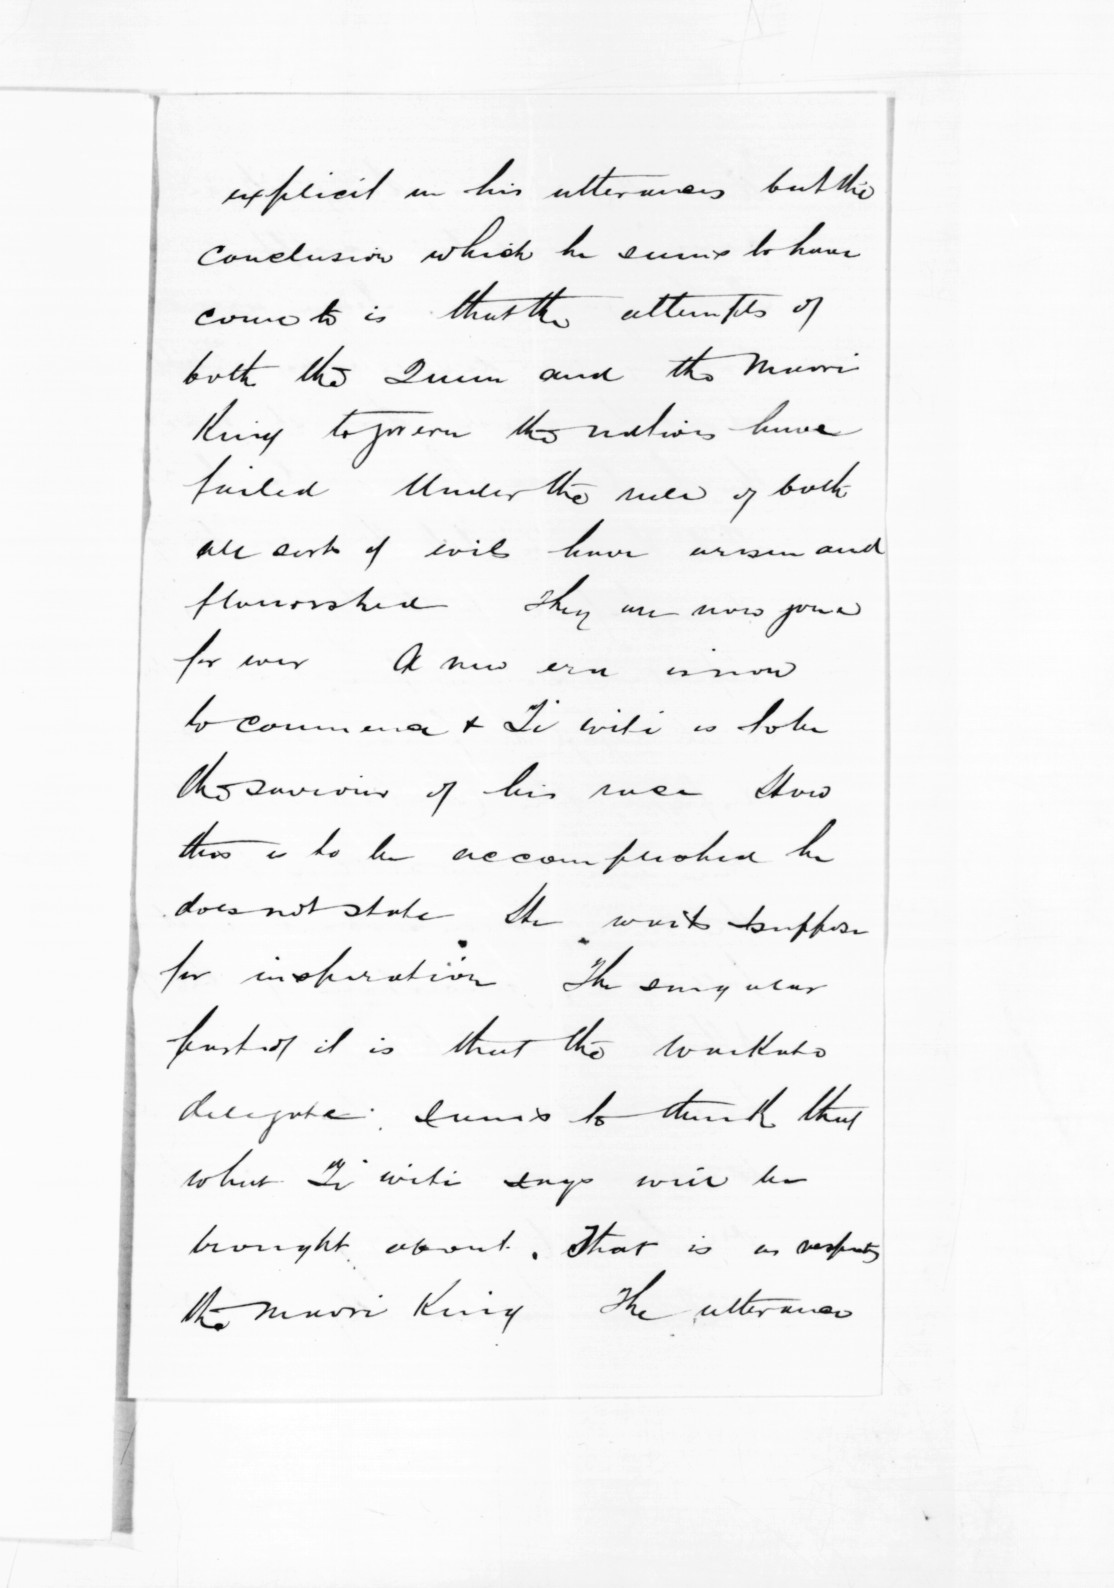 explicit in his utterances but the
conclusion which he seems to have
come to is that the attempts of
both the Queen and the Maori
King to govern the natives have
failed Under the rule of both
all sorts of evils have arisen and
flourished They are now gone
for ever A new era is now
to commence & Te Witi is to be
the saviour of his race How
this is to be accomplished he
does not state He waits I suppose
for inspiration The singular
part of it is that the Waikato
delegate seems to think that
what Te Witi says will be
brought about. That is as respects
the Maori King The utterance